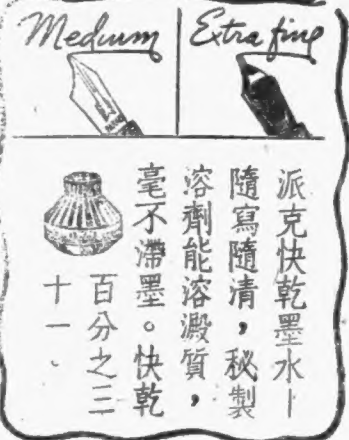 Medium
Extra fine
派克快乾墨水—
隨寫隨清，秘製
溶劑能溶澱質，
毫不滯墨。快乾
百分之三
十一、